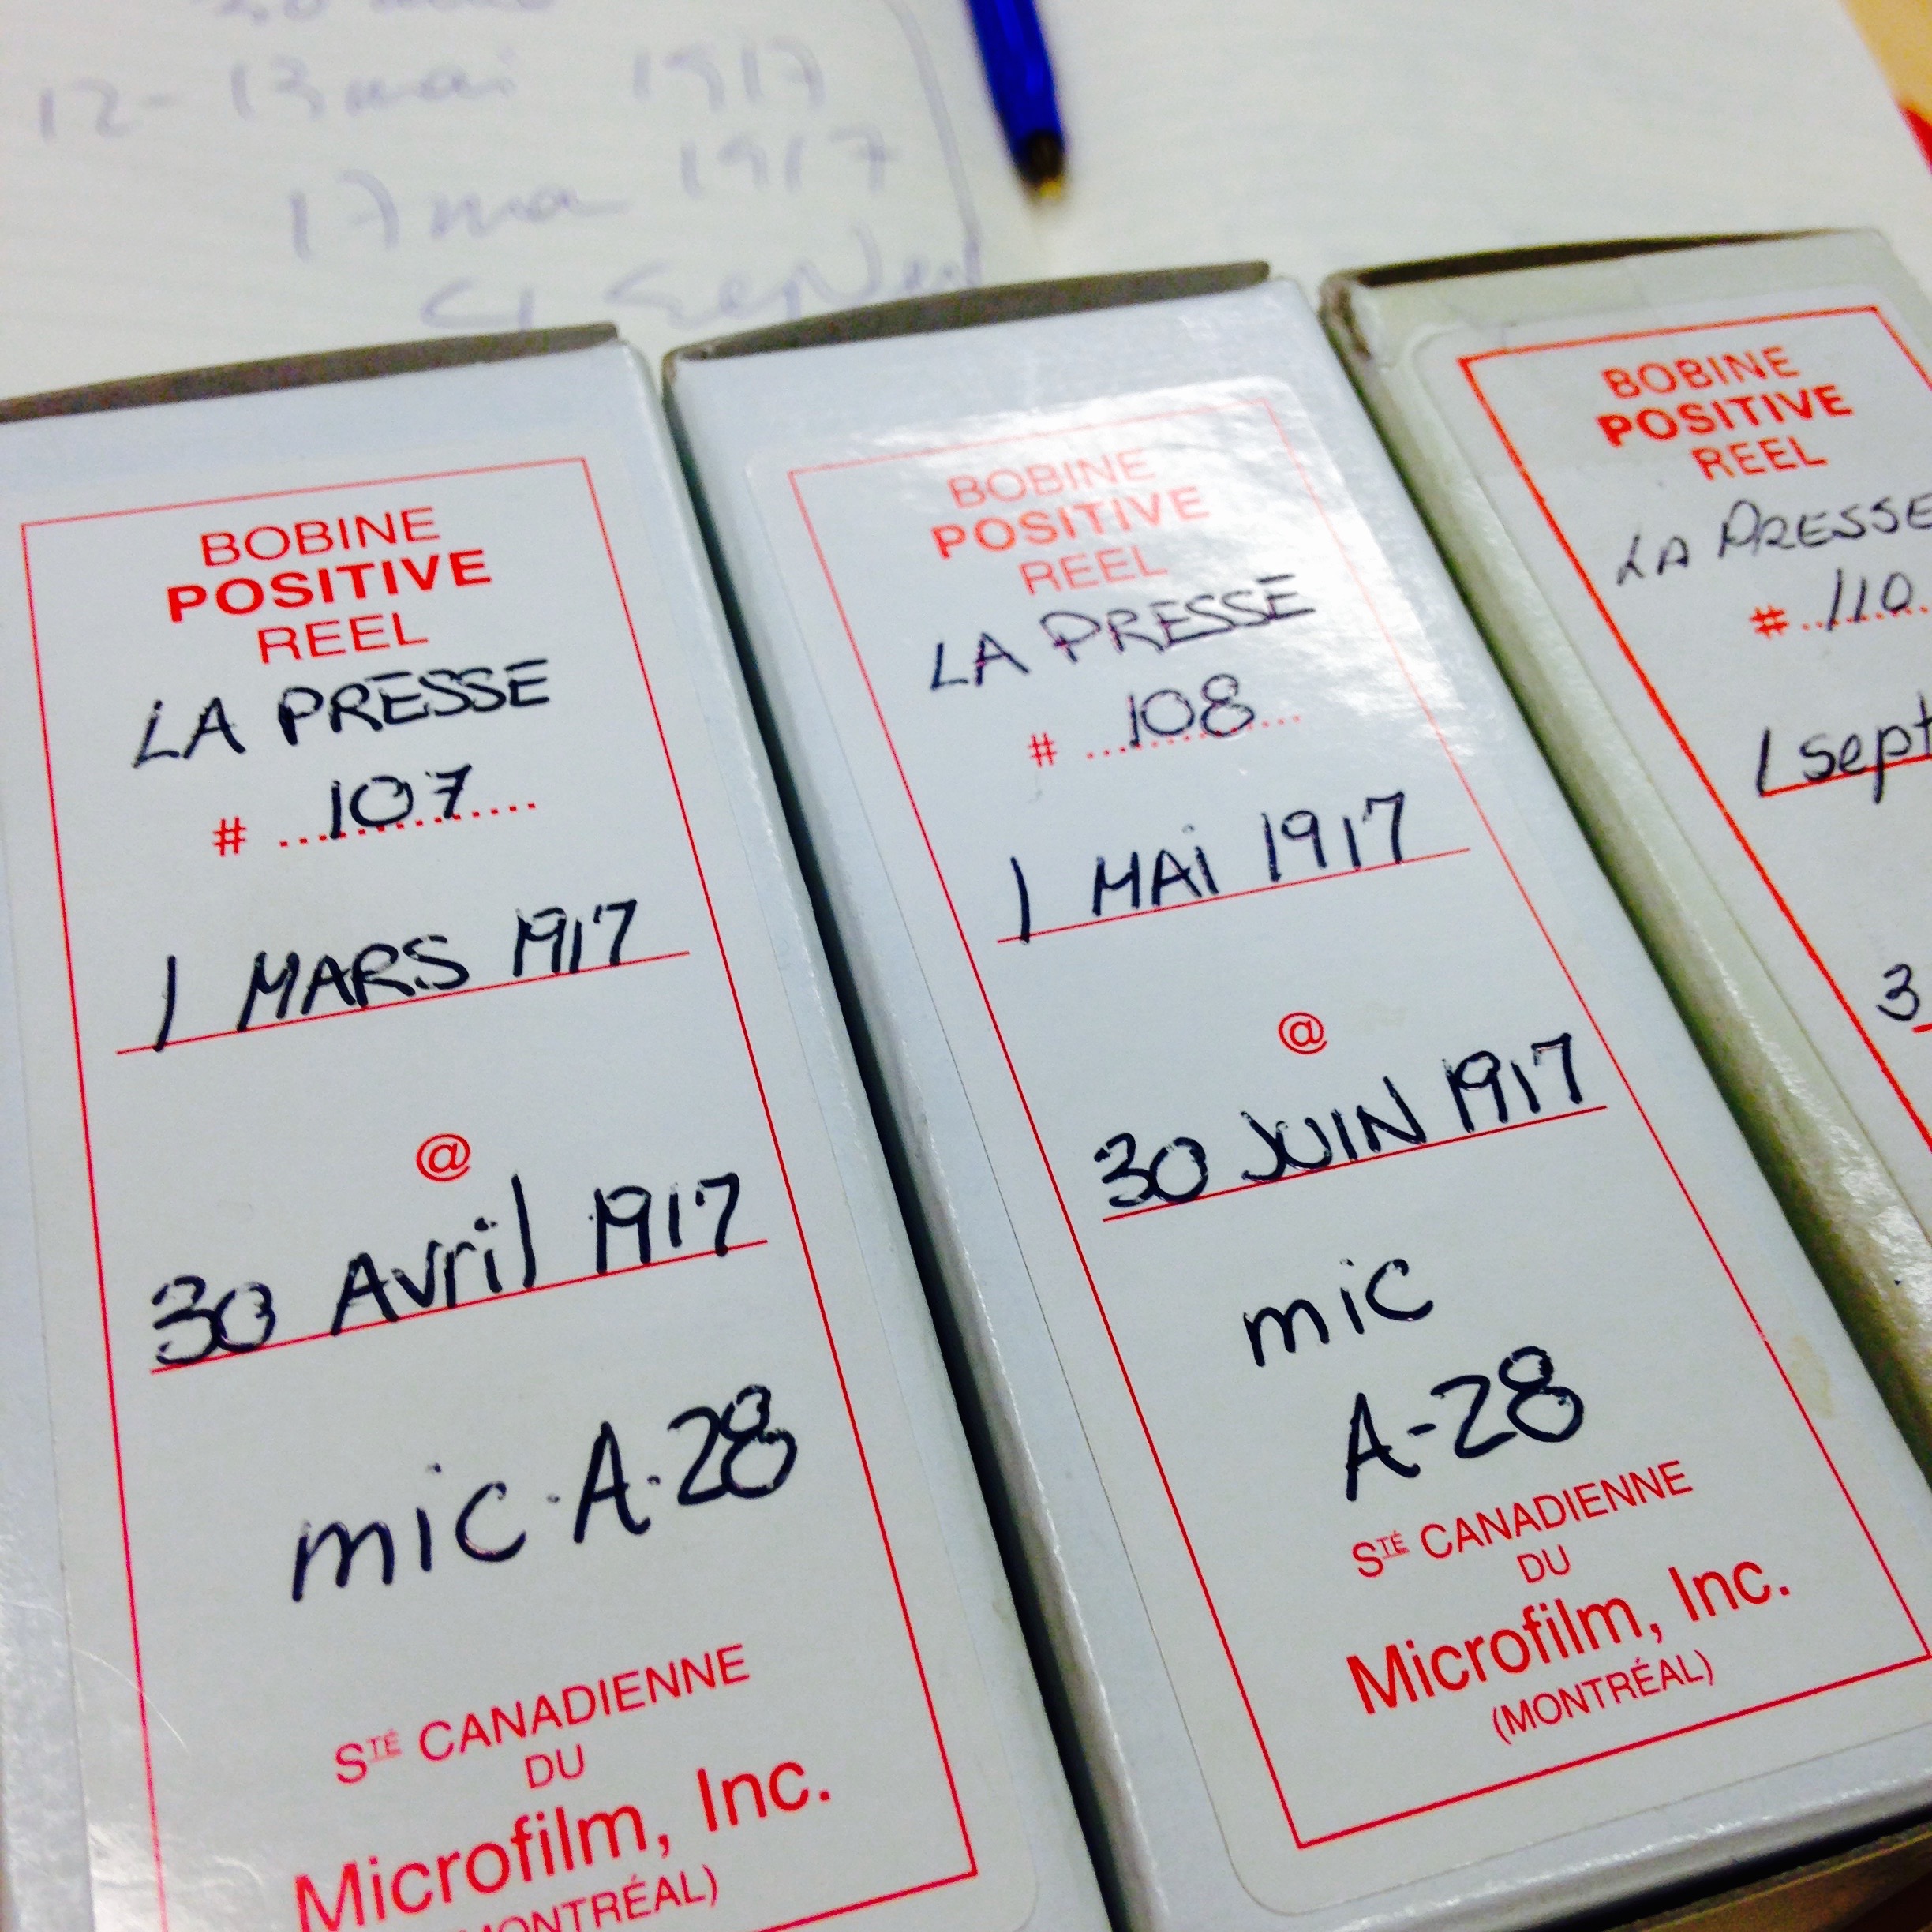 12- 13 mai 1917
17 mai 1917
BOBINE
POSITIVE
REEL
LA PRESSE
# 107
1 MARS 1917
@
30 Avril 1917
mic·A·28
STÉ CANADIENNE
DU
Microfilm, Inc.
(MONTRÉAL)
BOBINE
POSITIVE
REEL
LA PRESSE
# 108
1 MAi 1917
@
30 JUIN 1917
mic
A-28
STÉ CANADIENNE
DU
Microfilm, Inc.
(MONTRÉAL)
BOBINE
POSITIVE
REEL
LA PRESSE
# 110
1 sept
3